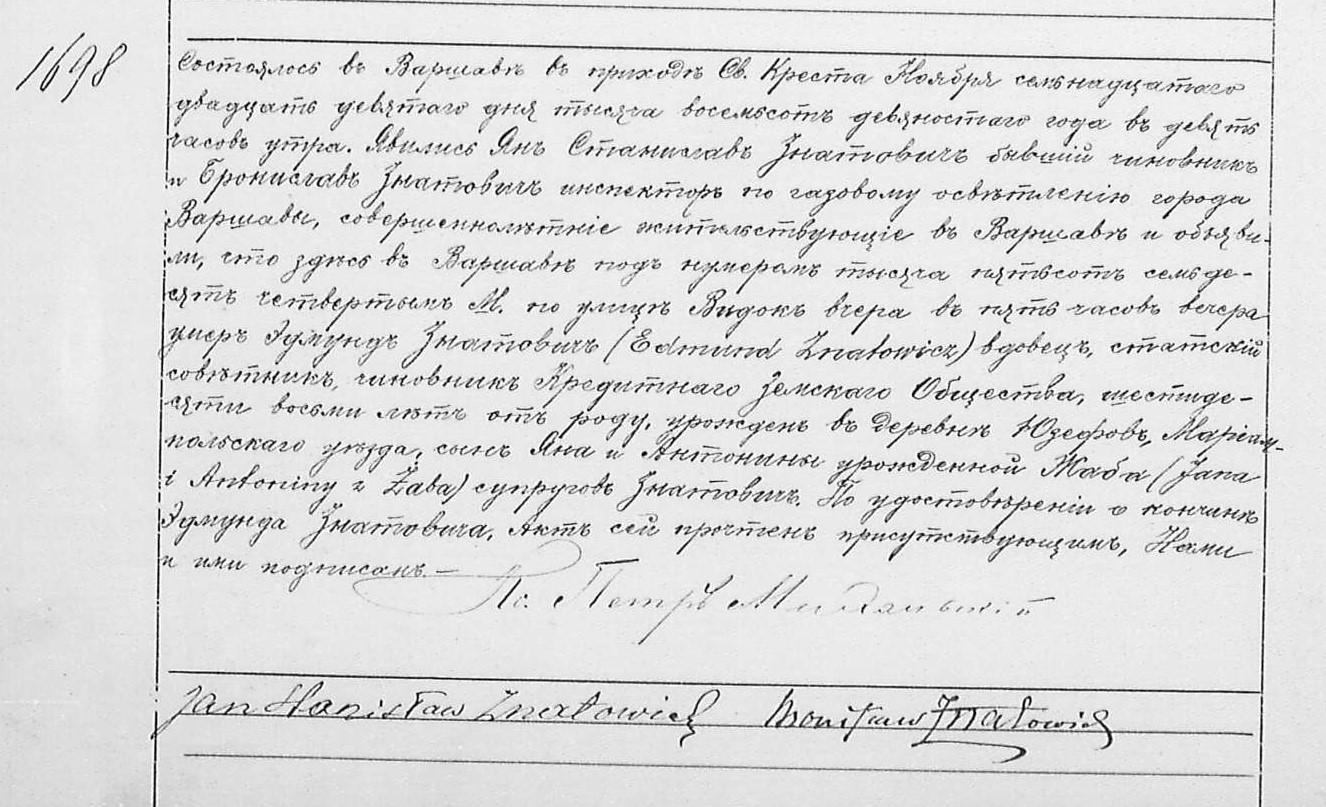 1698
Состоялось въ Варшавѣ въ приходѣ Св. Креста Ноября семьнадцатаго
двадцать девятаго дня тысяча восемьсотъ девяностаго года въ девять
часовъ утра. Явились Янъ Станиславъ Знатовичъ бывшій чиновникъ
и Брониславъ Знатовичъ инспекторъ по газовому освѣтленію города
Варшавы, совершеннолѣтніе жительствующіе въ Варшавѣ и объяви-
ли, что здѣсь въ Варшавѣ подъ нумеромъ тысяча пятьсотъ семьде-
сятъ четвертымъ М. по улицѣ Видокъ вчера въ пять часовъ вечера
умеръ Эдмундъ Знатовичъ (Edmund Znatowicz) вдовецъ, статскій
совѣтникъ, чиновникъ Кредитнаго Земскаго Общества, шестиде-
сяти восьми лѣтъ отъ роду, урожденъ въ деревнѣ Юзефовъ, Маріам-
польскаго уѣзда, сынъ Яна и Антонины урожденной Жаба (Jana
i Antoniny z Żaba) супруговъ Знатовичъ. По удостовѣреніи о кончинѣ
Эдмунда Знатовича, Актъ сей прочтенъ присутствующимъ, Нами
и ими подписанъ.—
Кс. Петръ
Jan Stanisław Znatowicz Bronisław Znatowicz